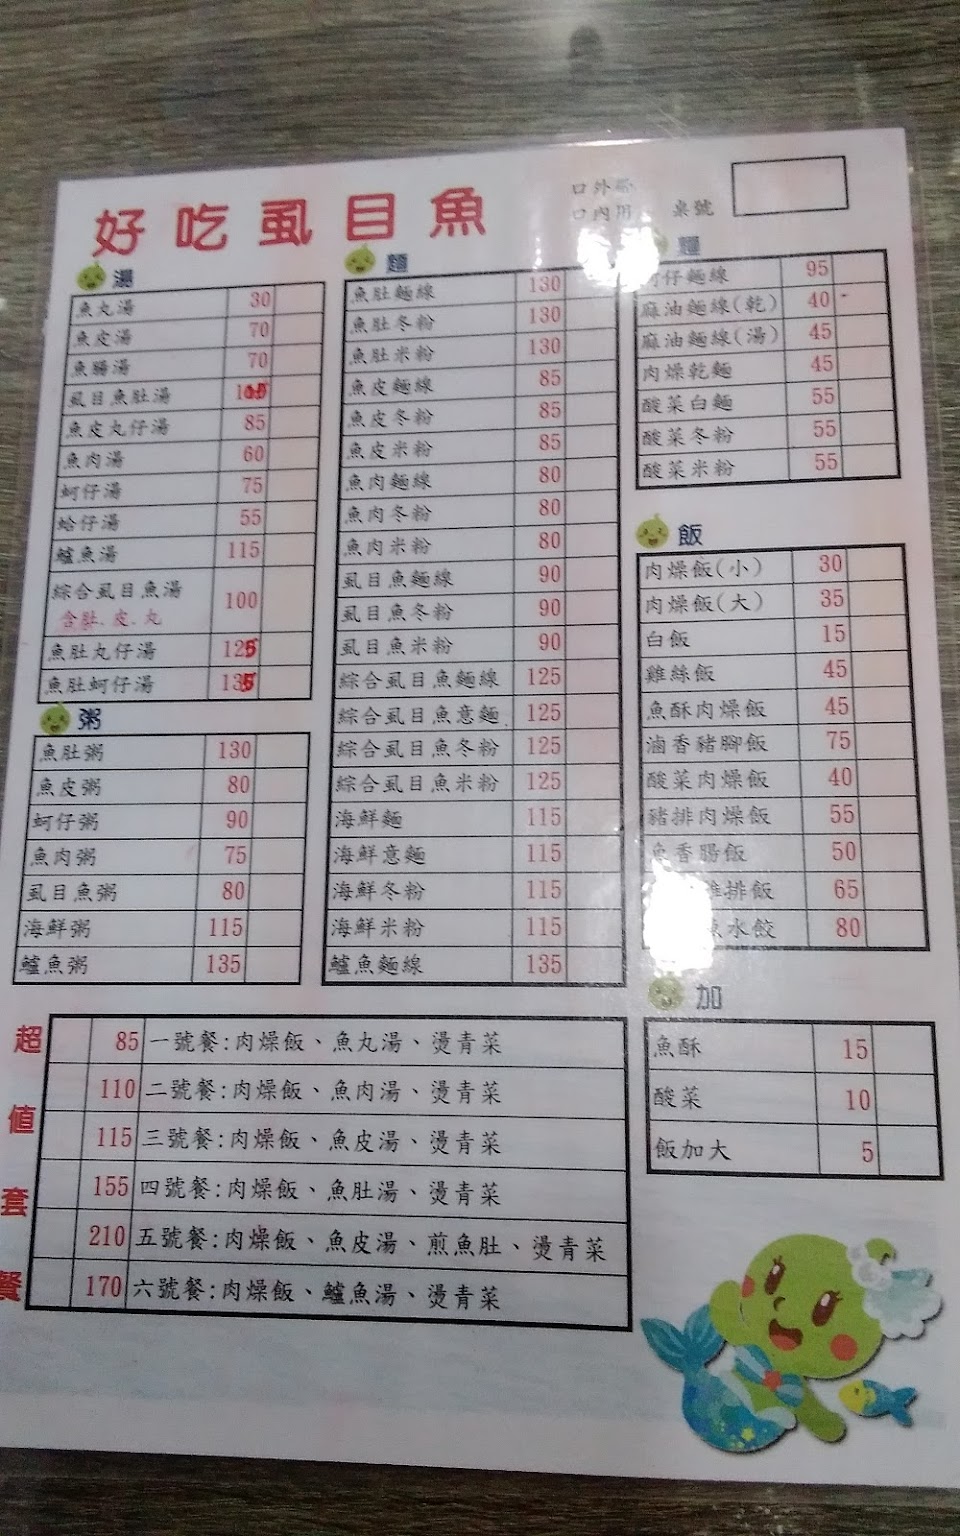 好吃虱目魚
口外帶
口內用 桌號
湯
魚丸湯 30
魚皮湯 70
魚腸湯 70
虱目魚肚湯
魚皮丸仔湯 85
魚肉湯 60
蚵仔湯 75
蛤仔湯 55
鱸魚湯 115
綜合虱目魚湯 100
含肚.皮.丸
魚肚丸仔湯 125
魚肚蚵仔湯 135
粥
魚肚粥 130
魚皮粥 80
蚵仔粥 90
魚肉粥 75
虱目魚粥 80
海鮮粥 115
鱸魚粥 135
麵
魚肚麵線 130
魚肚冬粉 130
魚肚米粉 130
魚皮麵線 85
魚皮冬粉 85
魚皮米粉 85
魚肉麵線 80
魚肉冬粉 80
魚肉米粉 80
虱目魚麵線 90
虱目魚冬粉 90
虱目魚米粉 90
綜合虱目魚麵線 125
綜合虱目魚意麵 125
綜合虱目魚冬粉 125
綜合虱目魚米粉 125
海鮮麵 115
海鮮意麵 115
海鮮冬粉 115
海鮮米粉 115
鱸魚麵線 135
麵
仔麵線 95
麻油麵線(乾) 40
麻油麵線(湯) 45
肉燥乾麵 45
酸菜白麵 55
酸菜冬粉 55
酸菜米粉 55
飯
肉燥飯(小) 30
肉燥飯(大) 35
白飯 15
雞絲飯 45
魚酥肉燥飯 45
滷香豬腳飯 75
酸菜肉燥飯 40
豬排肉燥飯 55
魚香腸飯 50
雞排飯 65
魚水餃 80
加
魚酥 15
酸菜 10
飯加大 5
超值套餐
85 一號餐:肉燥飯、魚丸湯、燙青菜
110 二號餐:肉燥飯、魚肉湯、燙青菜
115 三號餐:肉燥飯、魚皮湯、燙青菜
155 四號餐:肉燥飯、魚肚湯、燙青菜
210 五號餐:肉燥飯、魚皮湯、煎魚肚、燙青菜
170 六號餐:肉燥飯、鱸魚湯、燙青菜